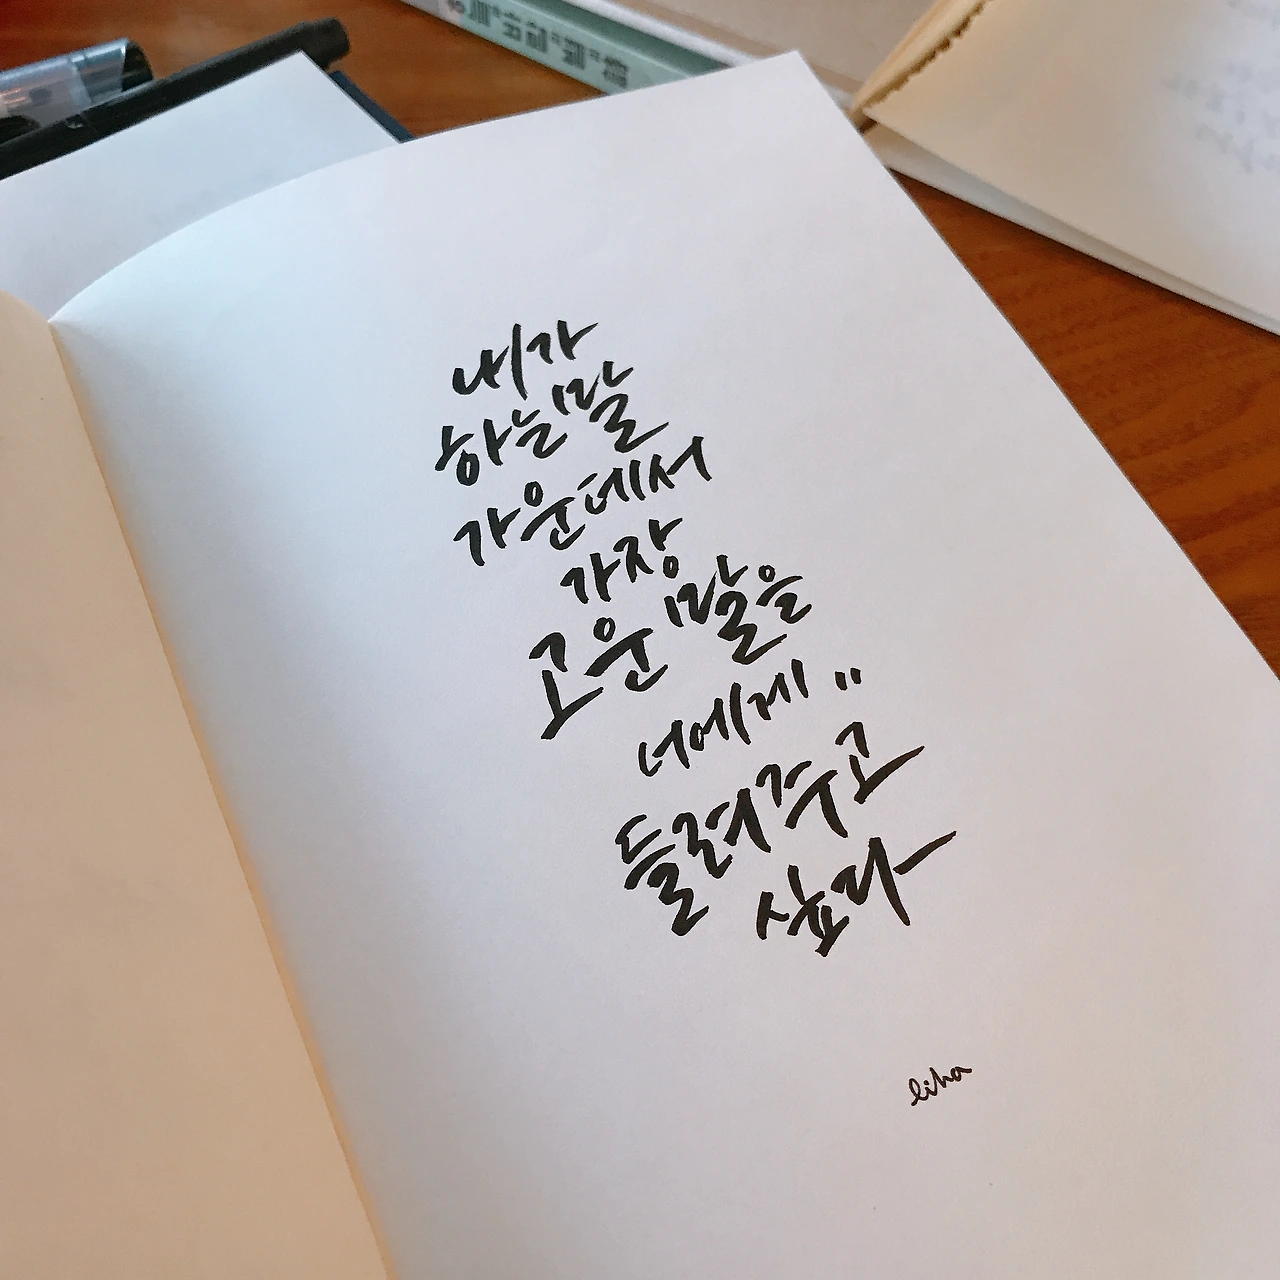 내가
하는 말
가운데서
가장
고운 말을
너에게..
들려주고
싶다
liha